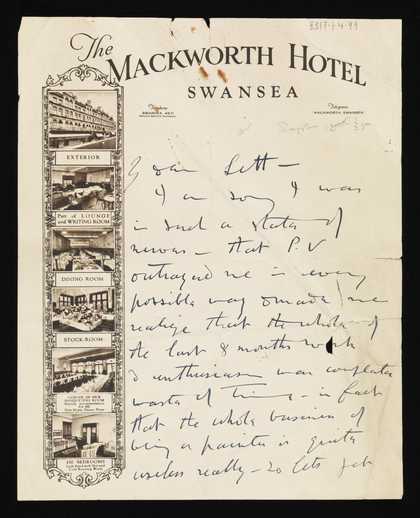 The
MACKWORTH HOTEL
SWANSEA
Telegrams
MACKWORTH, SWANSEA
EXTERIOR
Part of LOUNGE
and WRITING ROOM
DINING ROOM
STOCK-ROOM
BANQUETING ROOM
BEDROOMS
My dear Lett –
I am sorry I was
in such a state of
nerves – that P.V
outraged me in every
possible way & made me
realize that the whole of
the last 8 months work
& enthusiasm was complete
waste of time – in fact
that the whole business of
being a painter is quite
useless really – so lets get